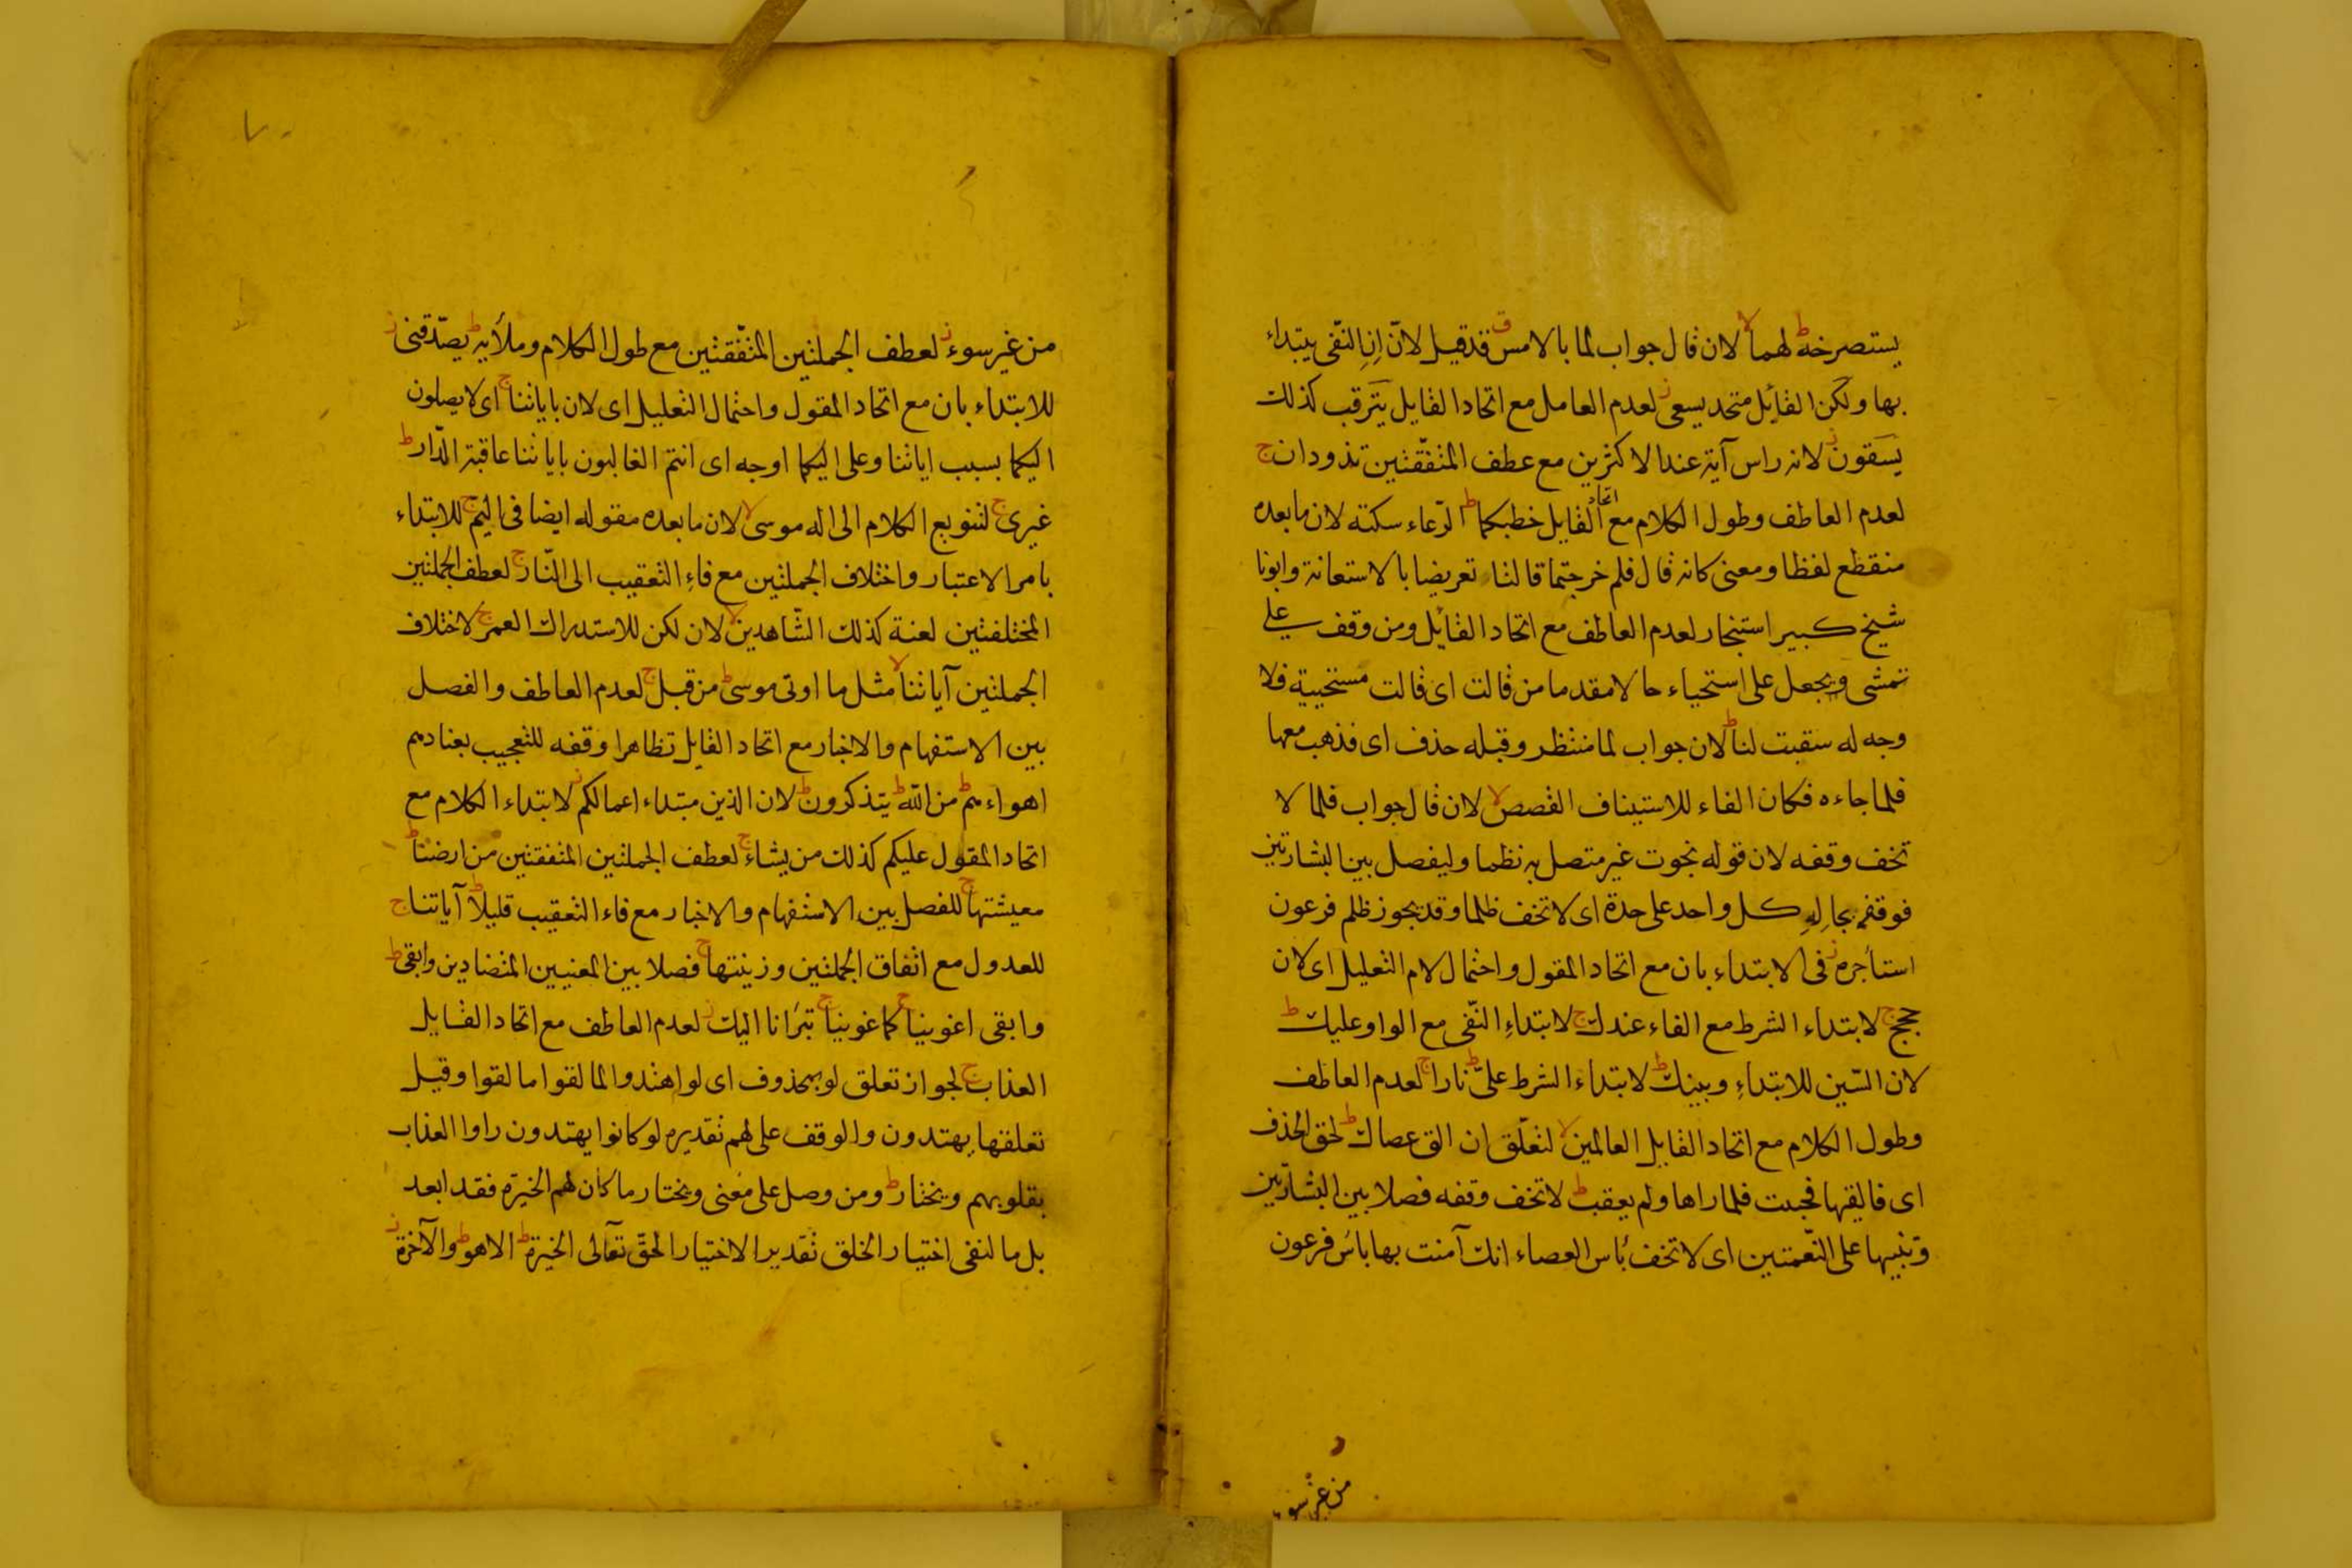 يستصرخه ط لهما لا لان قال جواب لما بالامس ق قد قيل لانّ اِنِ النّفى يبتداء
بها ولكن القائل متحد يسعى ز لعدم العامل مع اتحاد القايل يترقب كذلك
يسقون ز لانه راس آية عند الاكثرين مع عطف المتّفقتين تذودان ج
لعدم العاطف وطول الكلام مع اتحاد القايل خطبكما ط الرّعاء سكته لان ما بعده
منقطع لفظا ومعنى كانه قال فلم خرجتما قالتا تعريضا بالاستعانة وابونا
شيخ كبير استنجار لعدم العاطف مع اتحاد القائل ومن وقف على
تمشى ويجعل على استحياء حالا مقدما من قالت اى قالت مستحيية فلا
وجه له سقيت لنا ط لان جواب لما منتظر وقبله حذف اى فذهب معها
فلما جاءه فكان الفاء للاستيناف القصص لا لان قال جواب فلما لا
تخف وقفه لان قوله نجوت غير متصل به نظما وليفصل بين البشارتين
كل واحد على حدة اى لا تخف ظلما وقد يجوز ظلم فرعون
استأجره ز فى الابتداء بان مع اتحاد المقول واحتمال لام التعليل اى لان
حجج ج لابتداء الشرط مع الفاء عندك ج لابتداءِ النّفى مع الواو عليك ط
لان السّين للابتداءِ وبينك ط لابتداء الشرط علىّ ط نارا ج لعدم العاطف
وطول الكلام مع اتحاد القايل العالمين لا لتعلّق ان الق عصاك ط لحق الحذف
اى فالقيها فحييت فلما راها ولم يعقب ط لا تخف وقفه فصلا بين البشارتين
وتنبيها على النّعمتين اى لا تخف بأس العصاء انك آمنت بها بأس فرعون
من غير سوء
من غير سوء ز لعطف الجملتين المتّفقتين مع طول الكلام وملأيه ط يصدّقنى ز
للابتداء بان مع اتحاد المقول واحتمال التعليل اى لان باياتنا ج اى لا يصلون
اليكما بسبب اياتنا وعلى اليكما اوجه اى انتم الغالبون باياتنا عاقبة الدّار ط
غيرى ج لتنويع الكلام الى اله موسى لا لان ما بعده مقوله ايضا فى اليمّ ج للابتداء
بامر الاعتبار واختلاف الجملتين مع فاءِ التعقيب الى النّار ج لعطف الجملتين
المختلفتين لعنة كذلك الشّاهدين لا لان لكن للاستدراك العمر ج لاختلاف
الجملتين آياتنا لا مثل ما اوتى موسى ط من قبل ج لعدم العاطف والفصل
بين الاستفهام والاخبار مع اتحاد القايل تظاهرا وقفه للتعجيب بعنادهم
اهواءهم ط من اللّه ط يتذكرون ط لان الذين مبتداء اعمالكم ز لابتداء الكلام مع
اتحاد المقول عليكم كذلك من يشاء ج لعطف الجملتين المتفقتين من ارضنا ط
معيشتها ج للفصل بين الاستفهام والاخبار مع فاء التعقيب قليلا ط آياتنا ج
للعدول مع اتفاق الجملتين وزينتها ج فصلا بين المعنيين المتضادين وابقى ط
وابقى اغوينا ج كما غوينا ج تبرّانا اليك ز لعدم العاطف مع اتحاد القايل
العذاب ج لجواز تعلق لو بمحذوف اى لو اهتدوا لما لقوا ما لقوا وقيل
تعلقها يهتدون والوقف على لهم تقديره لو كانوا يهتدون راوا العذاب
بقلوبهم ويختار ط ومن وصل على معنى ويختار ما كان لهم الخيرة فقد ابعد
بل ما لنفى اختيار الخلق تقديرا لاختيار الحقّ تعالى الخيرة ط الا هو ط والآخرة ز